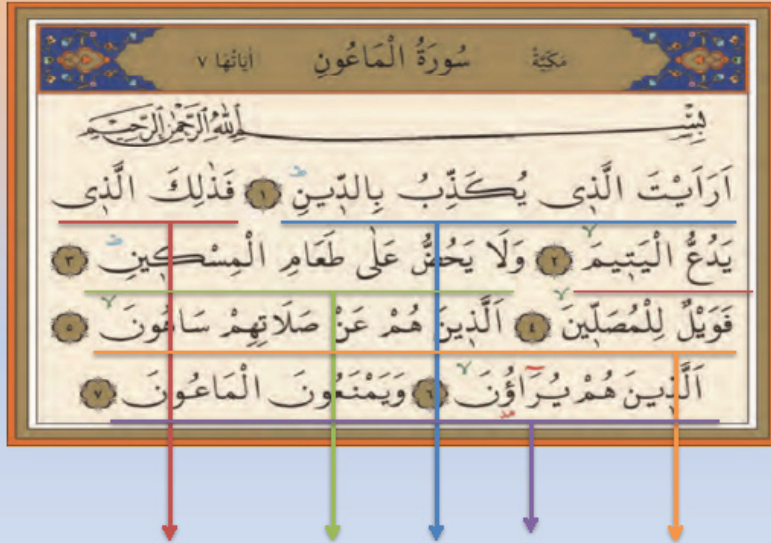 مَكِّيَّةٌ سُورَةُ الْمَاعُونِ اٰيَاتُهَا ٧
بِسْمِ اللّٰهِ الرَّحْمٰنِ الرَّحِيمِ
اَرَاَيْتَ الَّذ۪ى يُكَذِّبُ بِالدّ۪ينِۜ ﴿١﴾ فَذٰلِكَ الَّذ۪ى
يَدُعُّ الْيَت۪يمَۙ ﴿٢﴾ وَلَا يَحُضُّ عَلٰى طَعَامِ الْمِسْك۪ينِۜ ﴿٣﴾
فَوَيْلٌ لِلْمُصَلّ۪ينَۙ ﴿٤﴾ اَلَّذ۪ينَ هُمْ عَنْ صَلَاتِهِمْ سَاهُونَۙ ﴿٥﴾
اَلَّذ۪ينَ هُمْ يُرَاؤُ۫نَۙ ﴿٦﴾ وَيَمْنَعُونَ الْمَاعُونَ ﴿٧﴾